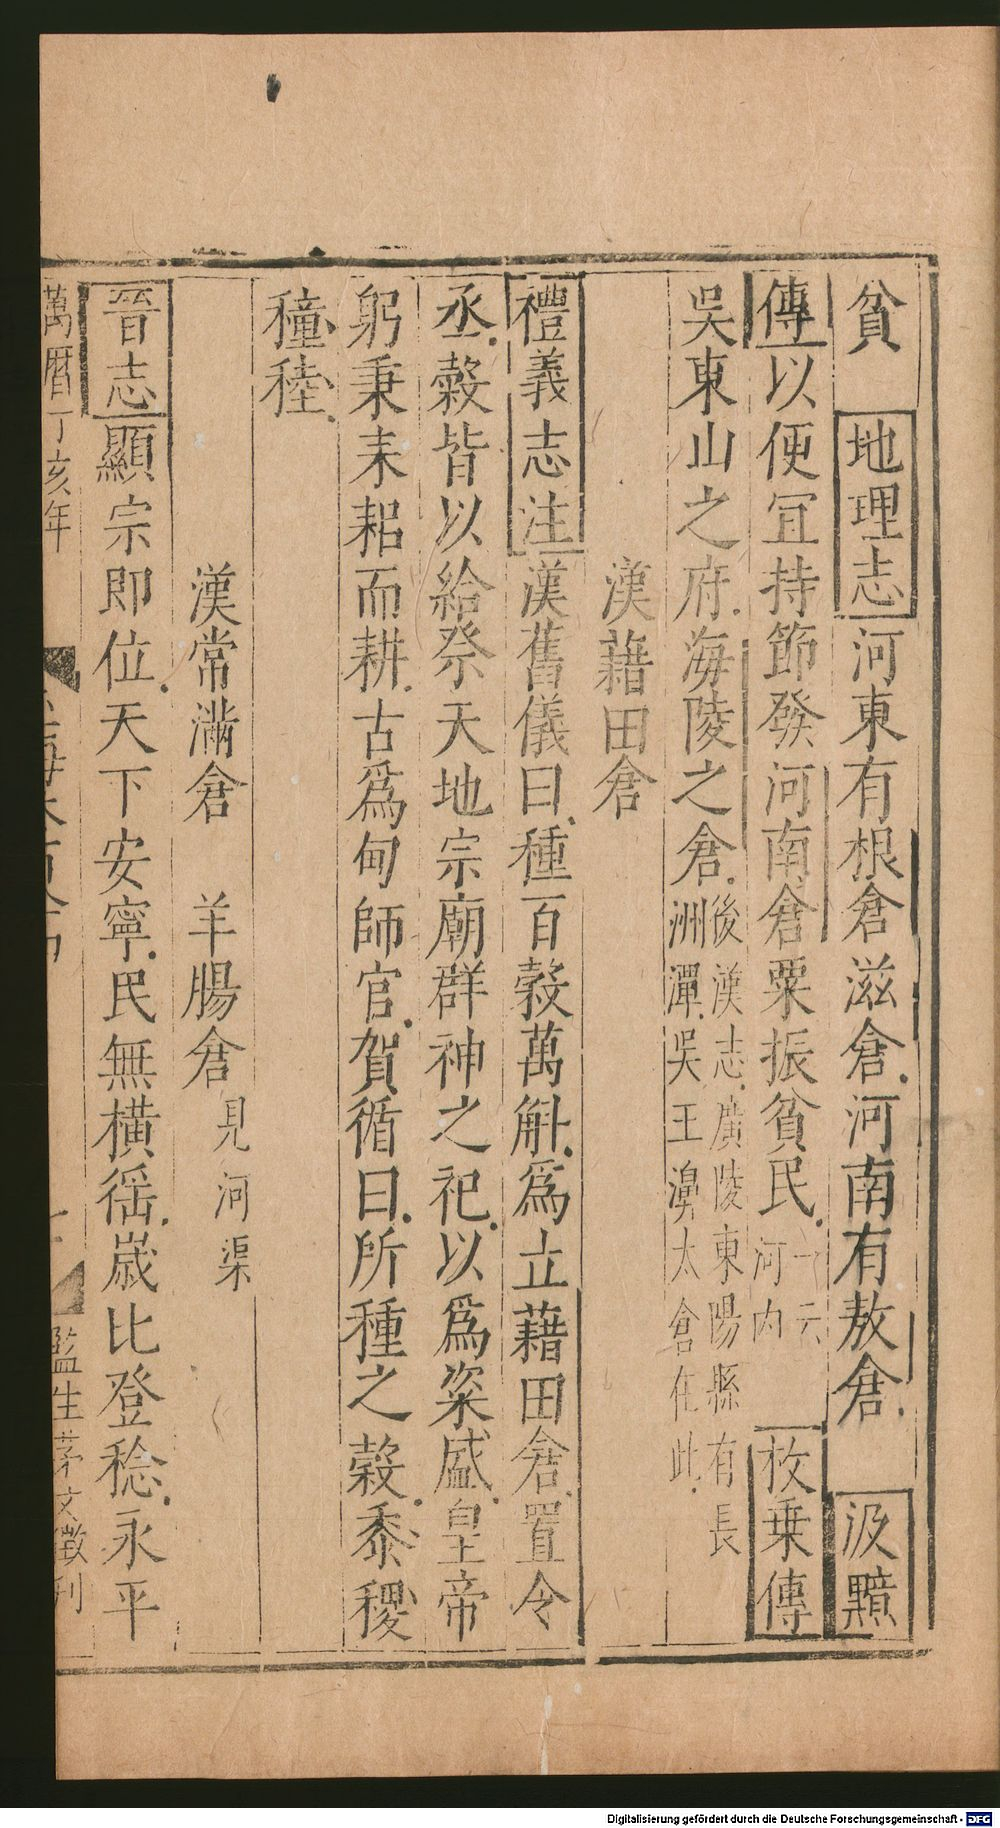 貧　地理志河東有根倉滋倉河南有敖倉　汲黯
傳以便宜持節發河南倉粟振貧民一云河內　枚乗傳
吳東山之府海陵之倉後漢志廣陵東陽縣有長洲潭吳王濞太倉在此
漢藉田倉
禮義志注漢舊儀曰種百穀萬斛為立藉田倉置令
丞穀皆以給祭天地宗廟群神之祀以為粢盛皇帝
躬秉耒耜而耕古為甸師官賀循曰所種之穀黍稷
穜稑
漢常滿倉　羊腸倉見河渠
晉志顯宗即位天下安寧民無橫徭嵗比登稔永平
萬曆丁亥年
監生茅文徵刊
Digitalisierung gefördert durch die Deutsche Forschungsgemeinschaft - DFG